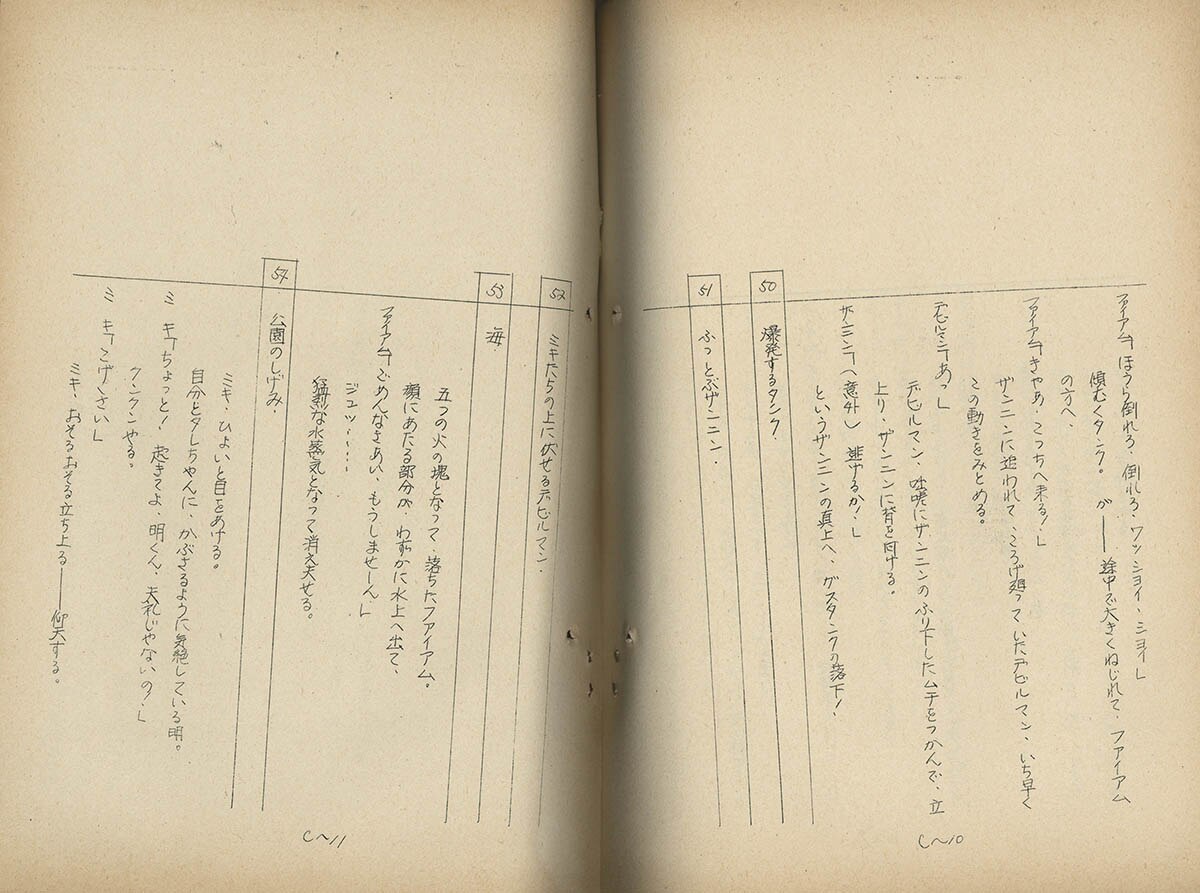 ファイアム「ほうら倒れろ、倒れろ、ワッショイ、ショイ」
傾むくタンク。が――途中で大きくねじれて、ファイアム
の方へ、
ファイアム「きゃあ、こっちへ来る!」
ザンニンに追われて、ころげ廻っていたデビルマン、いち早く
この動きをみとめる。
デビルマン「あっ」
デビルマン、咄嗟にザンニンのふり下したムチをつかんで、立
上り、ザンニンに背を向ける。
ザンニン「(意外)逃げるか!」
というザンニンの真上へ、ガスタンクの落下!
50 爆発するタンク.
51 ふっとぶザンニン.
C~10
52 ミキたちの上に伏せるデビルマン.
53 海
五つの火の塊となって、落ちたファイアム。
顔にあたる部分が、わずかに水上へ出て、
ファイアム「ごめんなさあい、もうしませーん」
ジュッ‥‥‥
猛烈な水蒸気となって消え失せる。
54 公園のしげみ.
ミキ、ひょいと目をあける。
自分とタレちゃんに、かぶさるように気絶している明。
ミキ「ちょっと! 起きてよ、明くん、失礼じゃないの!」
クンクンやる。
ミキ「こげくさい」
ミキ、おそるおそる立ち上る――仰天する。
C~11